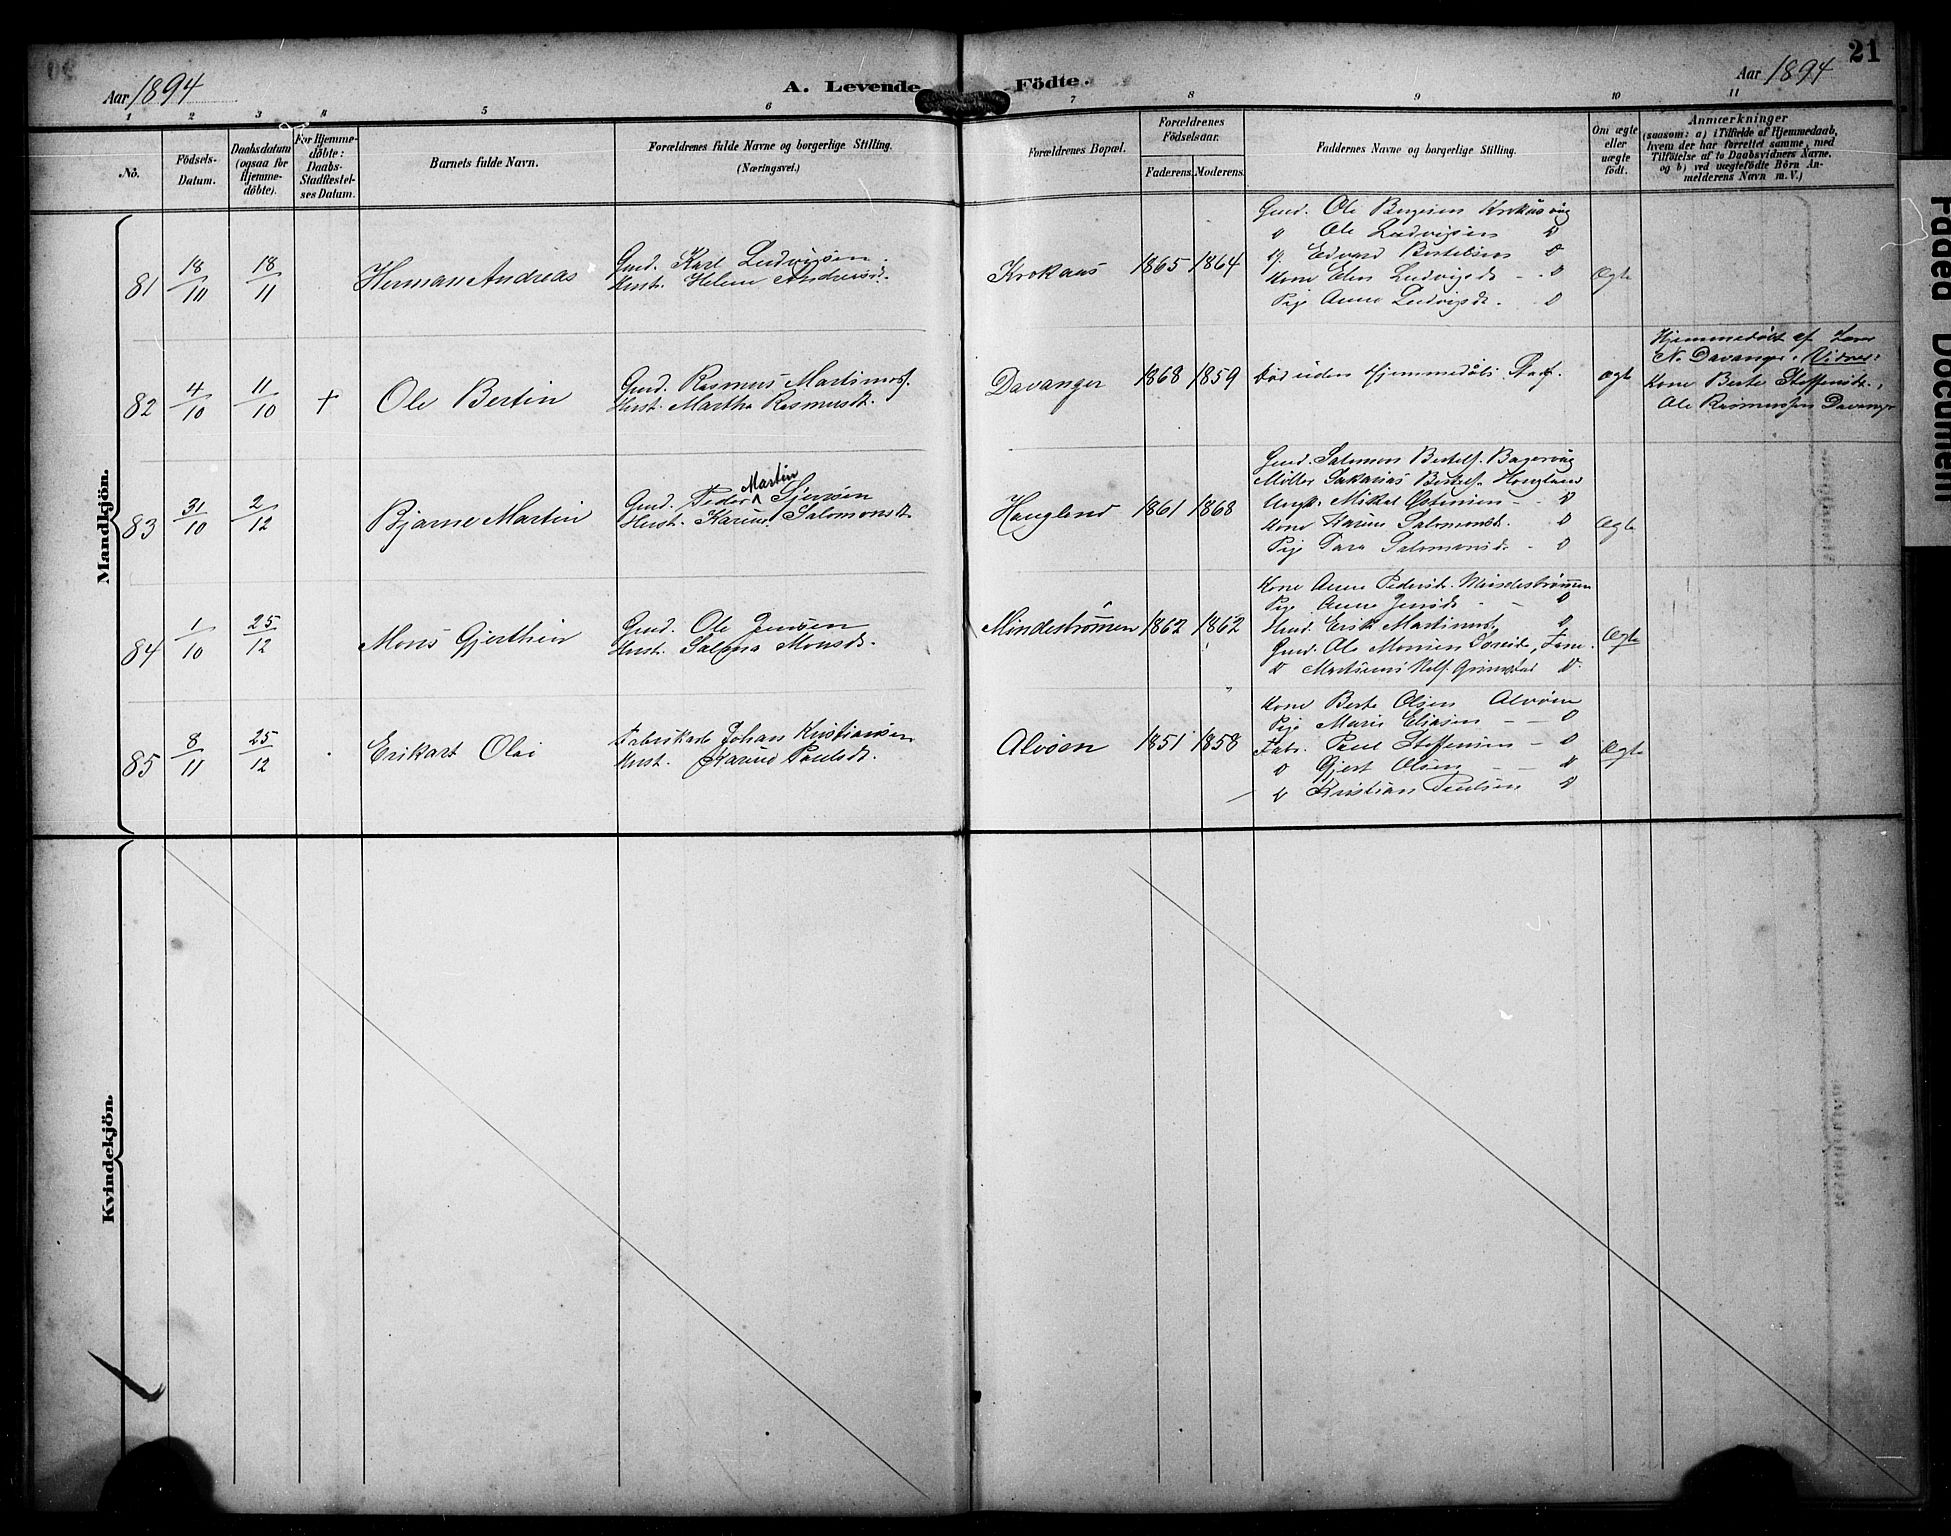 21
Aar 1894
A. Levende Födte.
Aar 1894
1 2 3 4 5 6 7 8 9 10 11
No.
Födsels-Datum.
Daabsdatum (ogsaa for Hjemme-döbte).
For Hjemme-döbte: Daabs-Stadfæstel-ses Datum.
Barnets fulde Navn.
Forældrenes fulde Navne og borgerlige Stilling.
(Næringsvei.)
Forældrenes Bopæl.
Forældrenes Födselsaar.
Faderens. Moderens.
Faddernes Navne og borgerlige Stilling.
Om ægte eller uægte födt.
Anmærkninger
(saasom: a) i Tilfælde af Hjemmedaab,
hvem der har forrettet samme, med
Tilföielse af to Daabsvidners Navne,
og b) ved uægtefödte Börn An-
melderens Navn m. V.)
Mandkjön.
81 18/10 18/11 Herman Andreas
Gmd. Karl Ludvigsen.
Hust. Helene Andersd.
Krokaas 1865 1864
Gmd. Ole Birgesen Krokaasvåg
D Ole Ludvigsen D
Edvard Bertelsen D
Kone Elen Ludvigsd. - D
Pige Anne Ludvigsdt. D
Ægte
82 4/10 11/10 + Ole Bertin
Gmd. Rasmus Martinusf.
Hust. Martha Rasmusdt.
Davanger 1868 1859
Död uden Hjemmedåbs Stadf.
Ægte
Hjemmedöbt af Lars
N. Davanger. Vidner:
Kone Berte Steffensdt.,
Ole Rasmussen Davanger
83 31/10 2/12 Bjarne Martin
Gmd. Peder Martin Sjursen
Hust. Karine Salomonsdt.
Haugland 1861 1868
Gmd. Salomon Bertelf.
Möller Sakarias Bertelf. Haugland
Ungk. Mikkel Östensen - D
Kone Karine Salomonsdt. D
Pige Sara Salomonsdt. - D
Ægte
84 1/10 25/12 Mons Gjerthin
Gmd. Ole Jensen
Hust. Salmna Monsdt.
Mindeströmmen 1862 1862
Kone Anne Pedersdt. Mindeströmmen
Pige Anne Jensdt. - D
Erik Martinusf. D
Gmd. Ole Monsen
D Martinus Nilsf. D
Ægte
85 8/11 25/12 Erikart Olai
Fabrikarb Johan Kristiansen
Hust. Karine Paulsdt.
Alvöen 1851 1858
Kone Berte Olsen Alvöen
Pige Marie Eliasen - D
Fabr. Paul Steffensen - D
D Gjert Olsen - D
D Kristian Paulsen D
Ægte
Kvindekjön.
Faded Document